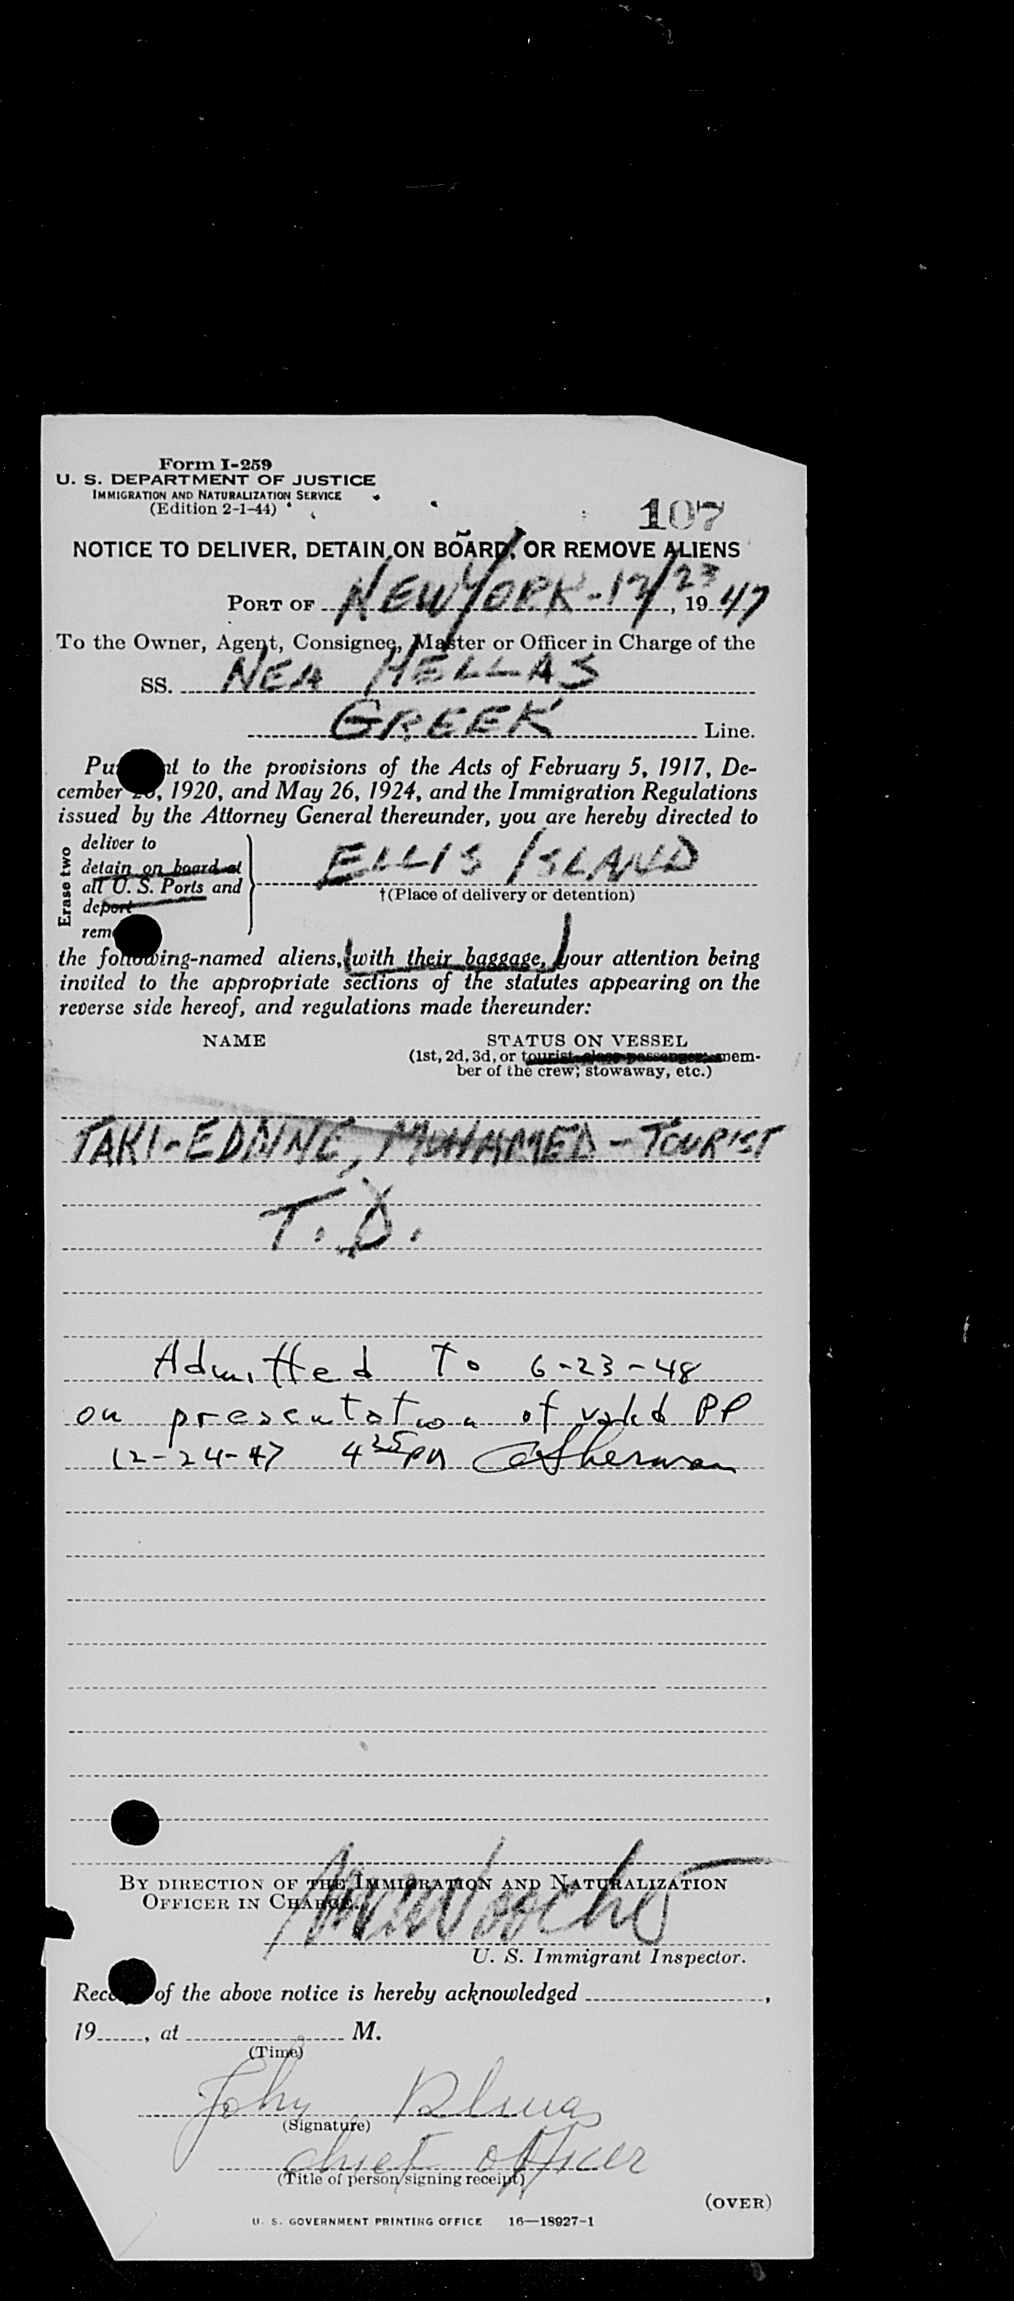 Form I-259
U. S. DEPARTMENT OF JUSTICE
IMMIGRATION AND NATURALIZATION SERVICE
(Edition 2-1-44)
107
NOTICE TO DELIVER, DETAIN ON BOARD, OR REMOVE ALIENS
PORT OF NEW YORK - 12/23, 1947
To the Owner, Agent, Consignee, Master or Officer in Charge of the
SS. NEA HELLAS
GREEK Line.
Pu nt to the provisions of the Acts of February 5, 1917, De-
cember , 1920, and May 26, 1924, and the Immigration Regulations
issued by the Attorney General thereunder, you are hereby directed to
Erase two
deliver to
detain on board at
all U. S. Ports and
deport
rem
ELLIS ISLAND
†(Place of delivery or detention)
the following-named aliens, (with their baggage,) your attention being
invited to the appropriate sections of the statutes appearing on the
reverse side hereof, and regulations made thereunder:
NAME STATUS ON VESSEL
(1st, 2d, 3d, or tourist class passenger; mem-
ber of the crew; stowaway, etc.)
TAKI-EDDINE, MUHAMED - TOURIST
T. D.
Admitted To 6-23-48
on presentation of valid PP
12-24-47 4 35 PM Sherman
BY DIRECTION OF THE IMMIGRATION AND NATURALIZATION
OFFICER IN CHARGE.
U. S. Immigrant Inspector.
Rece of the above notice is hereby acknowledged ,
19 , at M.
(Time)
John
(Signature)
chief officer
(Title of person signing receipt)
(OVER)
U. S. GOVERNMENT PRINTING OFFICE 16—18927-1